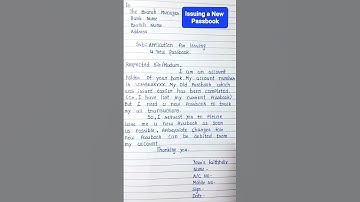 To
The Branch Manager
Bank Name
Branch Name
Address
Issuing a New
Passbook
Sub: Application for issuing
a new passbook.
Respected Sir/Madam,
I am an account
holder of your bank. My account number
is My old Passbook which
was issued earlier has been completed.
(Or, I have lost my current passbook)
But I need a new Passbook to track
my all transactions.
So, I request you to please
issue me a new Passbook as soon
as possible. Appropriate charges for
new Passbook can be debited from
my account.
Thanking you.
Your's faithfully
Name -
A/C No -
Mobile no -
Sign -
Date